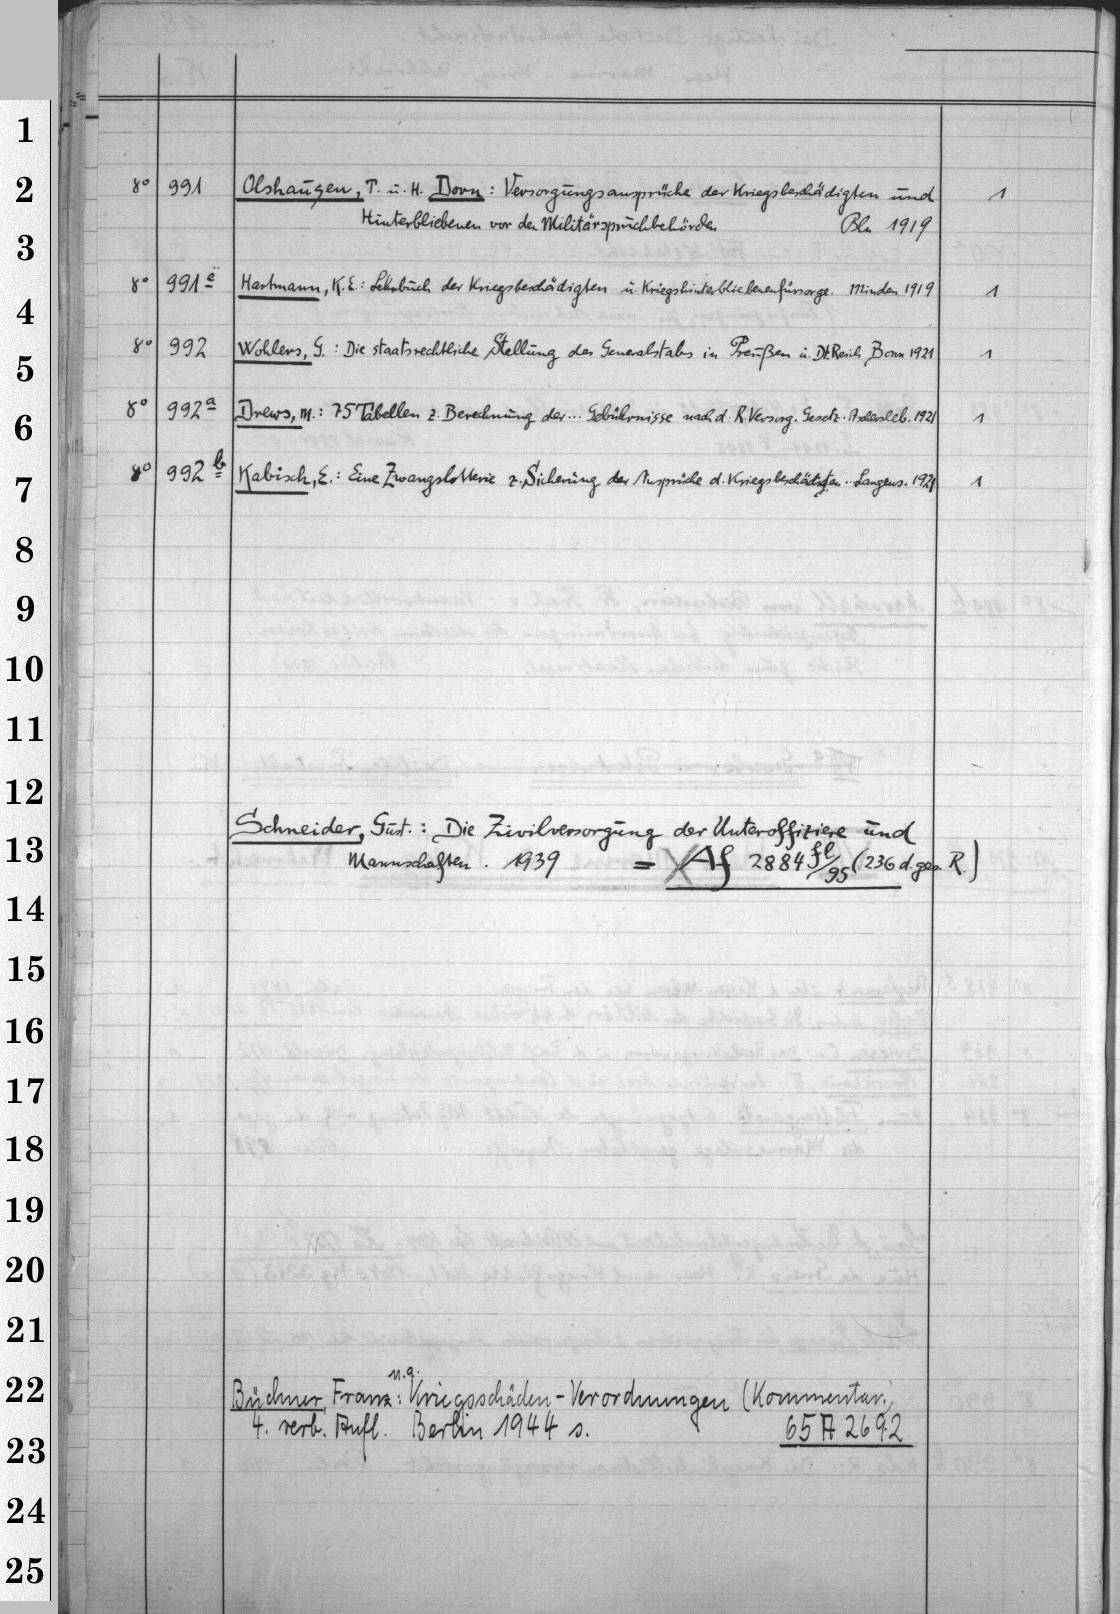 1
2
3
4
5
6
7
8
9
10
11
12
13
14
15
16
17
18
19
20
21
22
23
24
25
8° 991 Olshausen, T. u. H. Dorn: Versorgungsansprüche der Kriegsbeschädigten und 1
Hinterbliebenen vor den Militärspruchbehörden Bln 1919
8° 991 e Hartmann, K.E.: Lehrbuch der Kriegsbeschädigten u. Kriegshinterbliebenenfürsorge. Minden 1919 1
8° 992 Wohlers, G.: Die staatsrechtliche Stellung des Generalstabs in Preußen u. Dt. Reich Bonn 1921 1
8° 992 a Drews, M.: 75 Tabellen z. Berechnung der... Gebührnisse nach d. R. Versorg. Gesetz. Aschersleb. 1921 1
8° 992 b Kabisch, E.: Eine Zwangslotterie z. Sicherung der Ansprüche d. Kriegsbeschädigten.. Langens. 1921 1
Schneider, Gust.: Die Zivilversorgung der Unteroffiziere und
Mannschaften. 1939 = Af 2884 fl/95 (236 d. ges. R.)
Büchner, Franz u.a.: Kriegsschäden-Verordnungen (Kommentar)
4. verb. Aufl. Berlin 1944 s. 65 A 2692